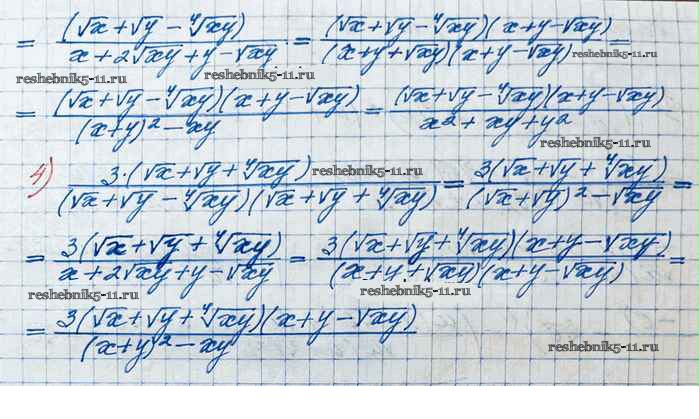 = (√x + √y - ⁴√xy) / (x + 2√xy + y - √xy) = (√x + √y - ⁴√xy)(x + y - √xy) / (x + y + √xy)(x + y - √xy) =
reshebnik5-11.ru reshebnik5-11.ru reshebnik5-11.ru
= (√x + √y - ⁴√xy)(x + y - √xy) / (x + y)² - xy = (√x + √y - ⁴√xy)(x + y - √xy) / x² + xy + y²
reshebnik5-11.ru
4) 3·(√x + √y + ⁴√xy) / (√x + √y - ⁴√xy)(√x + √y + ⁴√xy) = 3(√x + √y + ⁴√xy) / (√x + √y)² - √xy =
reshebnik5-11.ru reshebnik5-11.ru
= 3(√x + √y + ⁴√xy) / x + 2√xy + y - √xy = 3(√x + √y + ⁴√xy)(x + y - √xy) / (x + y + √xy)(x + y - √xy) =
reshebnik5-11.ru reshebnik5-11.ru
= 3(√x + √y + ⁴√xy)(x + y - √xy) / (x + y)² - xy
reshebnik5-11.ru